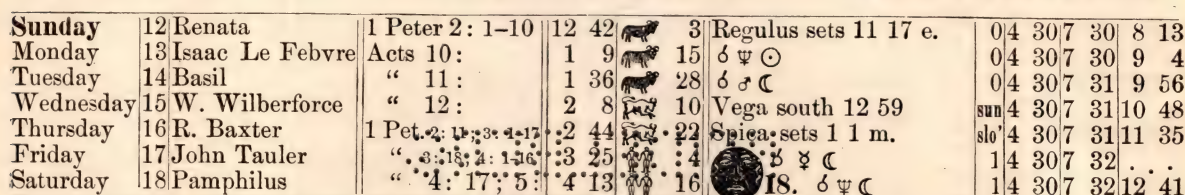 Sunday 12 Renata 1 Peter 2: 1–10 12 42 3 Regulus sets 11 17 e. 0 4 30 7 30 8 13
Monday 13 Isaac Le Febvre Acts 10: 1 9 15 ☌ ♆ ☉ 0 4 30 7 30 9 4
Tuesday 14 Basil “ 11: 1 36 28 ☌ ♂ ☾ 0 4 30 7 31 9 56
Wednesday 15 W. Wilberforce “ 12: 2 8 10 Vega south 12 59 sun 4 30 7 31 10 48
Thursday 16 R. Baxter 1 Pet. 2: 11; 3: 1-17 2 44 22 Spica sets 1 1 m. slo' 4 30 7 31 11 35
Friday 17 John Tauler “ 3: 18; 4: 1-16 3 25 4 ☌ ☿ ☾ 1 4 30 7 32 . .
Saturday 18 Pamphilus “ 4: 17; 5: 4 13 16 18. ☌ ♆ ☾ 1 4 30 7 32 12 41